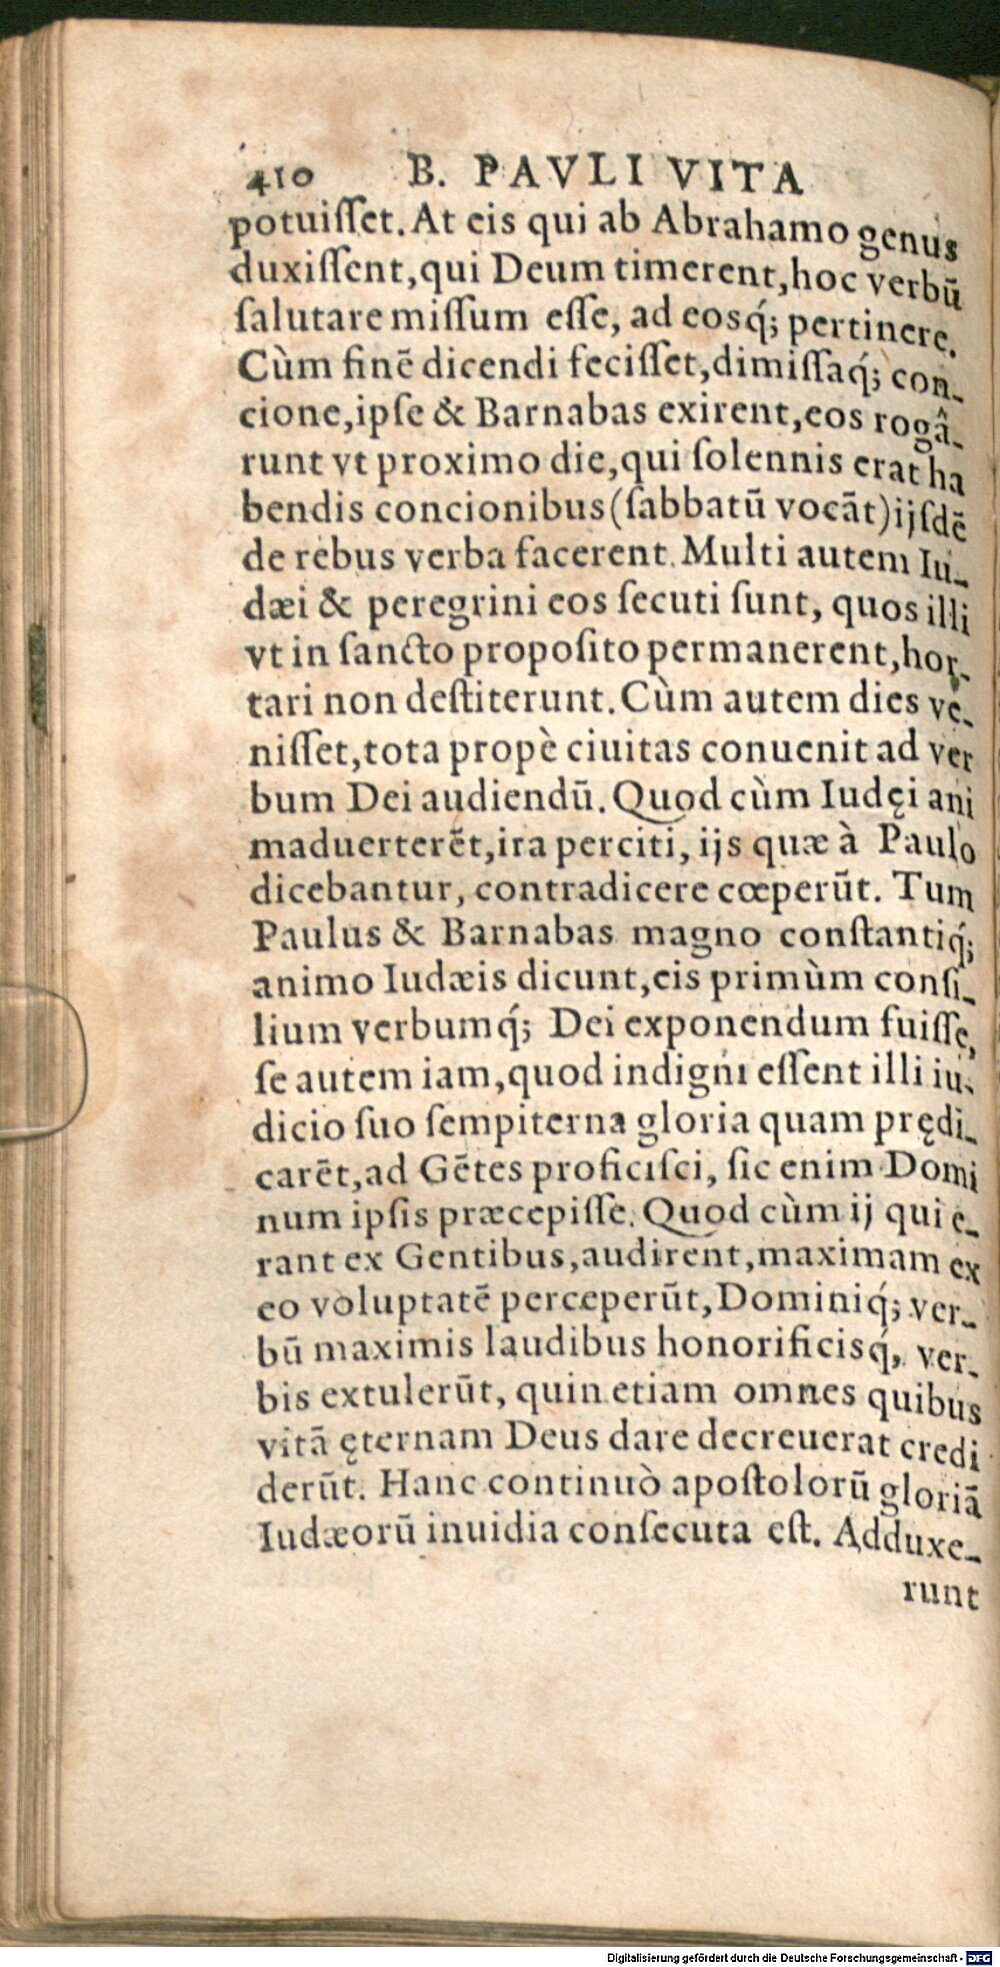 410 B. PAVLI VITA
potuiſſet. At eis qui ab Abrahamo genus
duxiſſent, qui Deum timerent, hoc verbū
ſalutare miſſum eſſe, ad eosq́; pertinere.
Cùm finē dicendi feciſſet, dimiſſaq́; con-
cione, ipſe & Barnabas exirent, eos rogâ-
runt vt proximo die, qui ſolennis erat ha
bendis concionibus (ſabbatū vocāt) ijſdē
de rebus verba facerent. Multi autem Iu-
dæi & peregrini eos ſecuti ſunt, quos illi
vt in ſancto propoſito permanerent, hor-
tari non deſtiterunt. Cùm autem dies ve-
niſſet, tota propè ciuitas conuenit ad ver
bum Dei audiendū. Quod cùm Iudęi ani
maduerterēt, ira perciti, ijs quæ à Paulo
dicebantur, contradicere cœperūt. Tum
Paulus & Barnabas magno conſtantiq́;
animo Iudæis dicunt, eis primùm conſi-
lium verbumq́; Dei exponendum fuiſſe,
ſe autem iam, quod indigni eſſent illi iu-
dicio ſuo ſempiterna gloria quam prędi-
carēt, ad Gētes proficiſci, ſic enim Domi
num ipſis præcepiſſe. Quod cùm ij qui e-
rant ex Gentibus, audirent, maximam ex
eo voluptatē perceperūt, Dominiq́; ver-
bū maximis laudibus honorificisq́, ver-
bis extulerūt, quin etiam omnes quibus
vitā ęternam Deus dare decreuerat credi
derūt. Hanc continuò apoſtolorū gloriā
Iudæorū inuidia conſecuta eſt. Adduxe-
runt
Digitalisierung gefördert durch die Deutsche Forschungsgemeinschaft - DFG